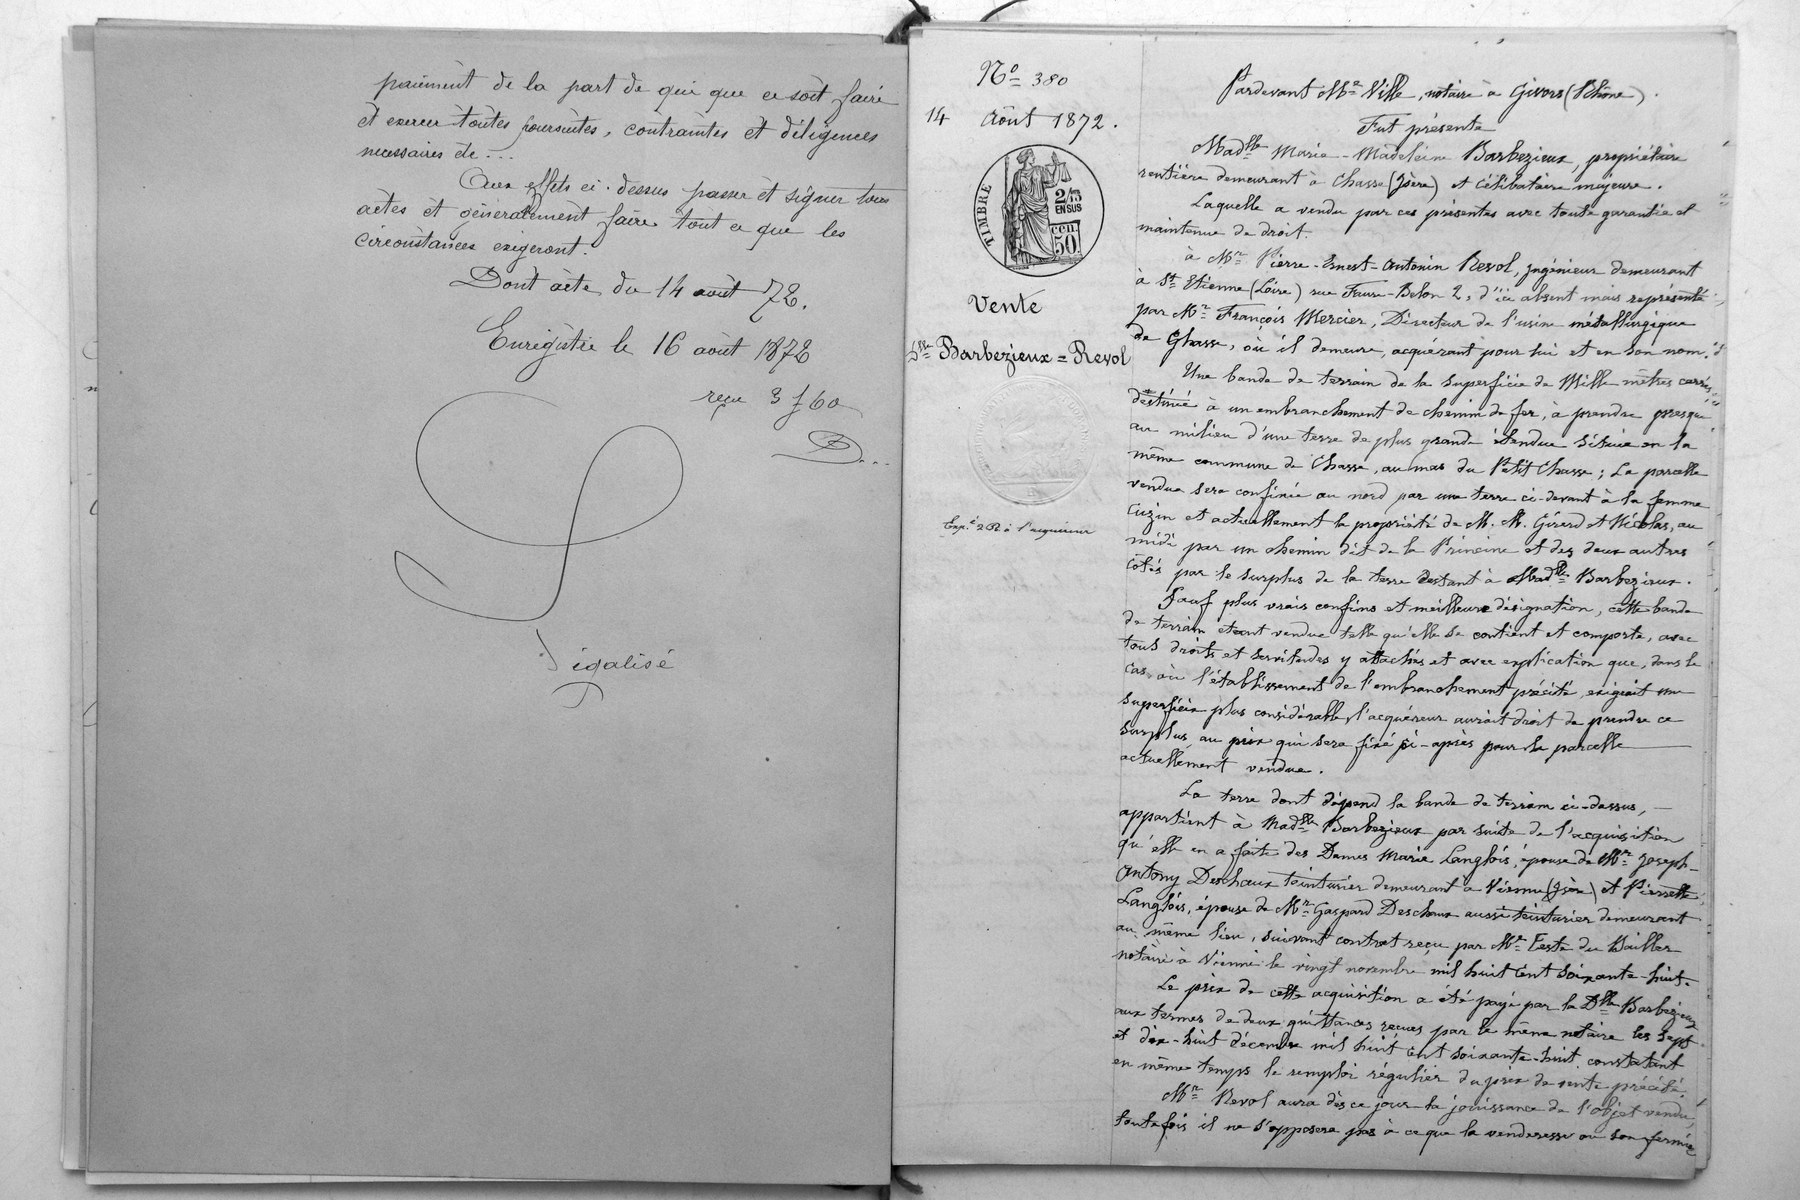 paiement de la part de qui que ce soit faire
et exercer toutes poursuites, contraintes et diligences
necessaires etc...
Aux effets ci-dessus passer et signer tous
actes et généralement faire tout ce que les
circonstances exigeront.
Dont acte du 14 août 72.
Enregistré le 16 août 1872
reçu 3 f 60
D...
égalisé
No 380
14 Août 1872.
TIMBRE
2/10 EN SUS
CEN. 50
Vente
Dlle Barbezieux = Revol
Expé 2 R à l'acquéreur
Pardevant Me Ville, notaire à Givors (Rhône).
Fut présente
Madlle Marie-Madeleine Barbezieux, propriétaire
rentière demeurant à Chasse (Isère) et célibataire majeure.
Laquelle a vendu par ces présentes avec toute garantie et
maintenue de droit.
à Mr Pierre-Ernest-Antonin Revol, ingénieur demeurant
à St Etienne (Loire) rue Faure-Belon 2, d'ici absent mais représenté
par Mr François Mercier, Directeur de l'usine métallurgique
de Chasse, où il demeure, acquérant pour lui et en son nom.
Une bande de terrain de la superficie de Mille mètres carrés
destinée à un embranchement de chemin de fer, à prendre presque
au milieu d'une terre de plus grande étendue située en la
même commune de Chasse, au mas du Petit Chasse; La parcelle
vendue sera confinée au nord par une terre ci-devant à la femme
Cuzin et actuellement la propriété de M. M. Girard et Nicolas, au
midi par un chemin dit de la Princine et des deux autres
côtés par le surplus de la terre restant à Madlle Barbezieux.
Sauf plus vrais confins et meilleure désignation, cette bande
de terrain étant vendue telle qu'elle se contient et comporte, avec
tous droits et servitudes y attachés et avec explication que, dans le
cas où l'établissement de l'embranchement précité, exigerait une
superficie plus considérable, l'acquéreur aurait droit de prendre ce
surplus au prix qui sera fixé ci-après pour la parcelle
actuellement vendue.
La terre dont dépend la bande de terrain ci-dessus,
appartient à Madlle Barbezieux par suite de l'acquisition
qu'elle en a faite des Dames Marie Langlois, épouse de Mr Joseph-
Antony Deschaux teinturier demeurant à Vienne (Isère) et Pierrette
Langlois, épouse de Mr Gaspard Deschaux aussi teinturier demeurant
au même lieu, suivant contrat reçu par Me Teste du Bailler
notaire à Vienne le vingt novembre mil huit cent soixante-huit.
Le prix de cette acquisition a été payé par la Dlle Barbezieux
aux termes de deux quittances reçues par le même notaire les sept
et dix-huit décembre mil huit cent soixante-huit constatant
en même temps le remploi régulier du prix de vente précité.
Mr Revol aura dès ce jour la jouissance de l'objet vendu,
toutefois il ne s'opposera pas à ce que la venderesse ou son fermier